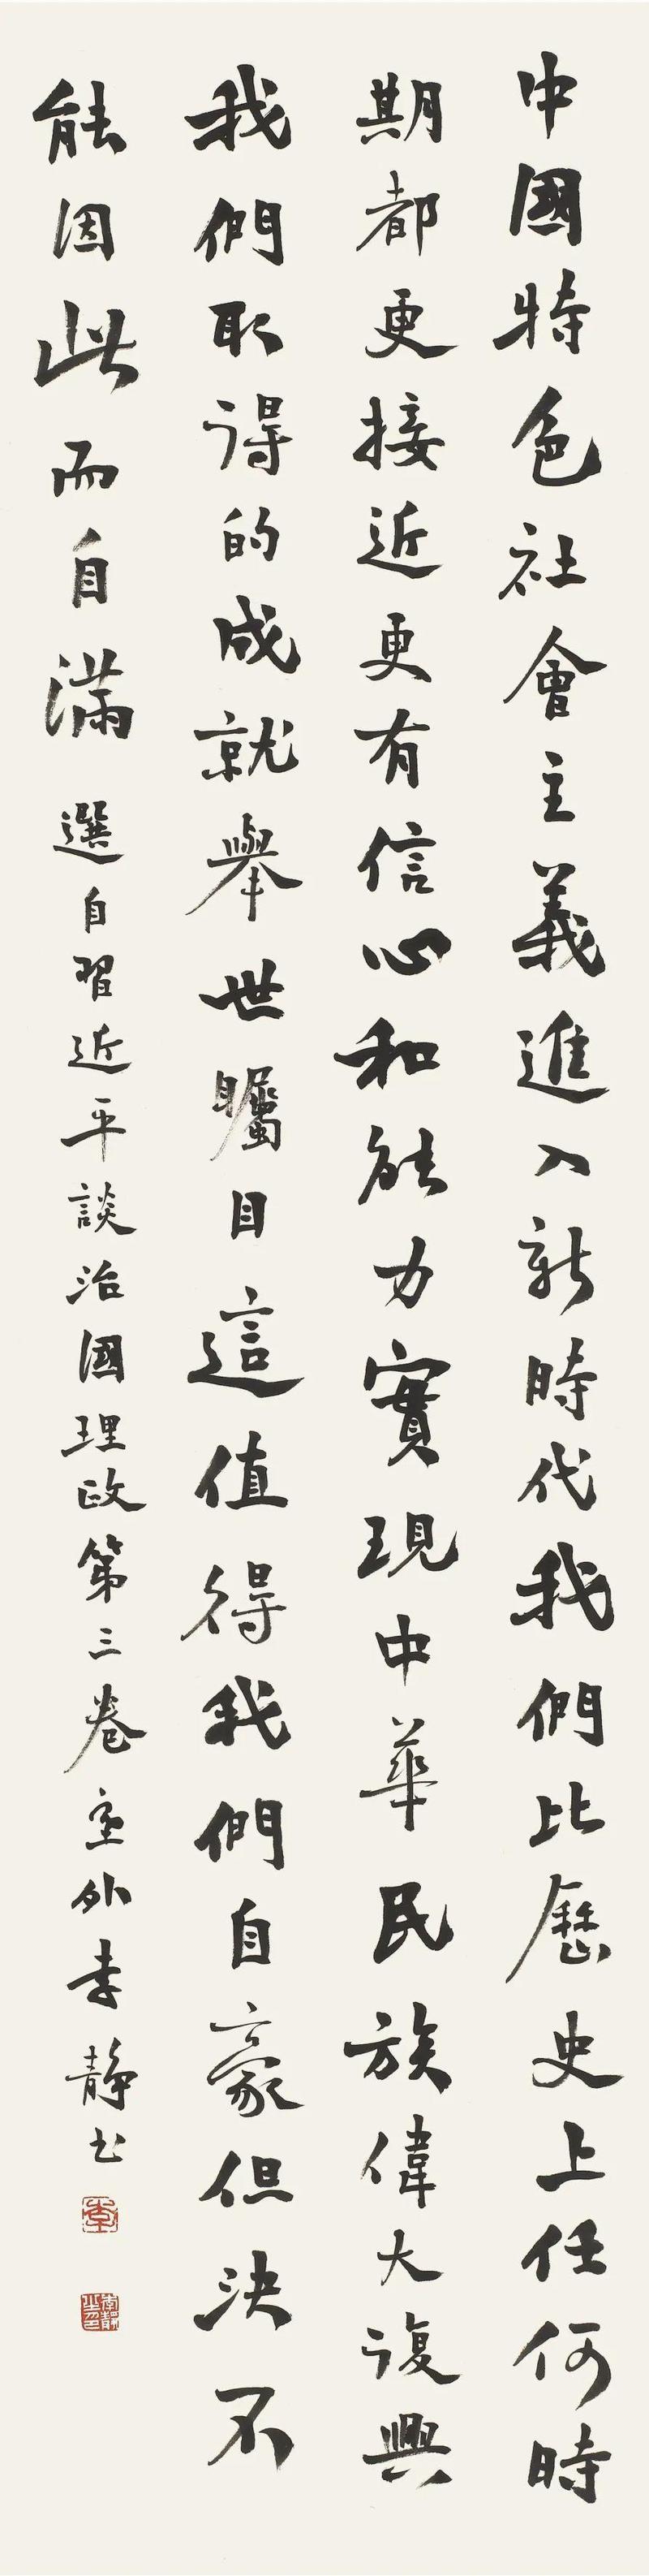 中國特色社會主義進入新時代我們比歷史上任何時
期都更接近更有信心和能力實現中華民族偉大復興
我們取得的成就舉世矚目這值得我們自豪但決不
能因此而自滿 選自習近平談治國理政第三卷塞外李靜书
李
李靜之印